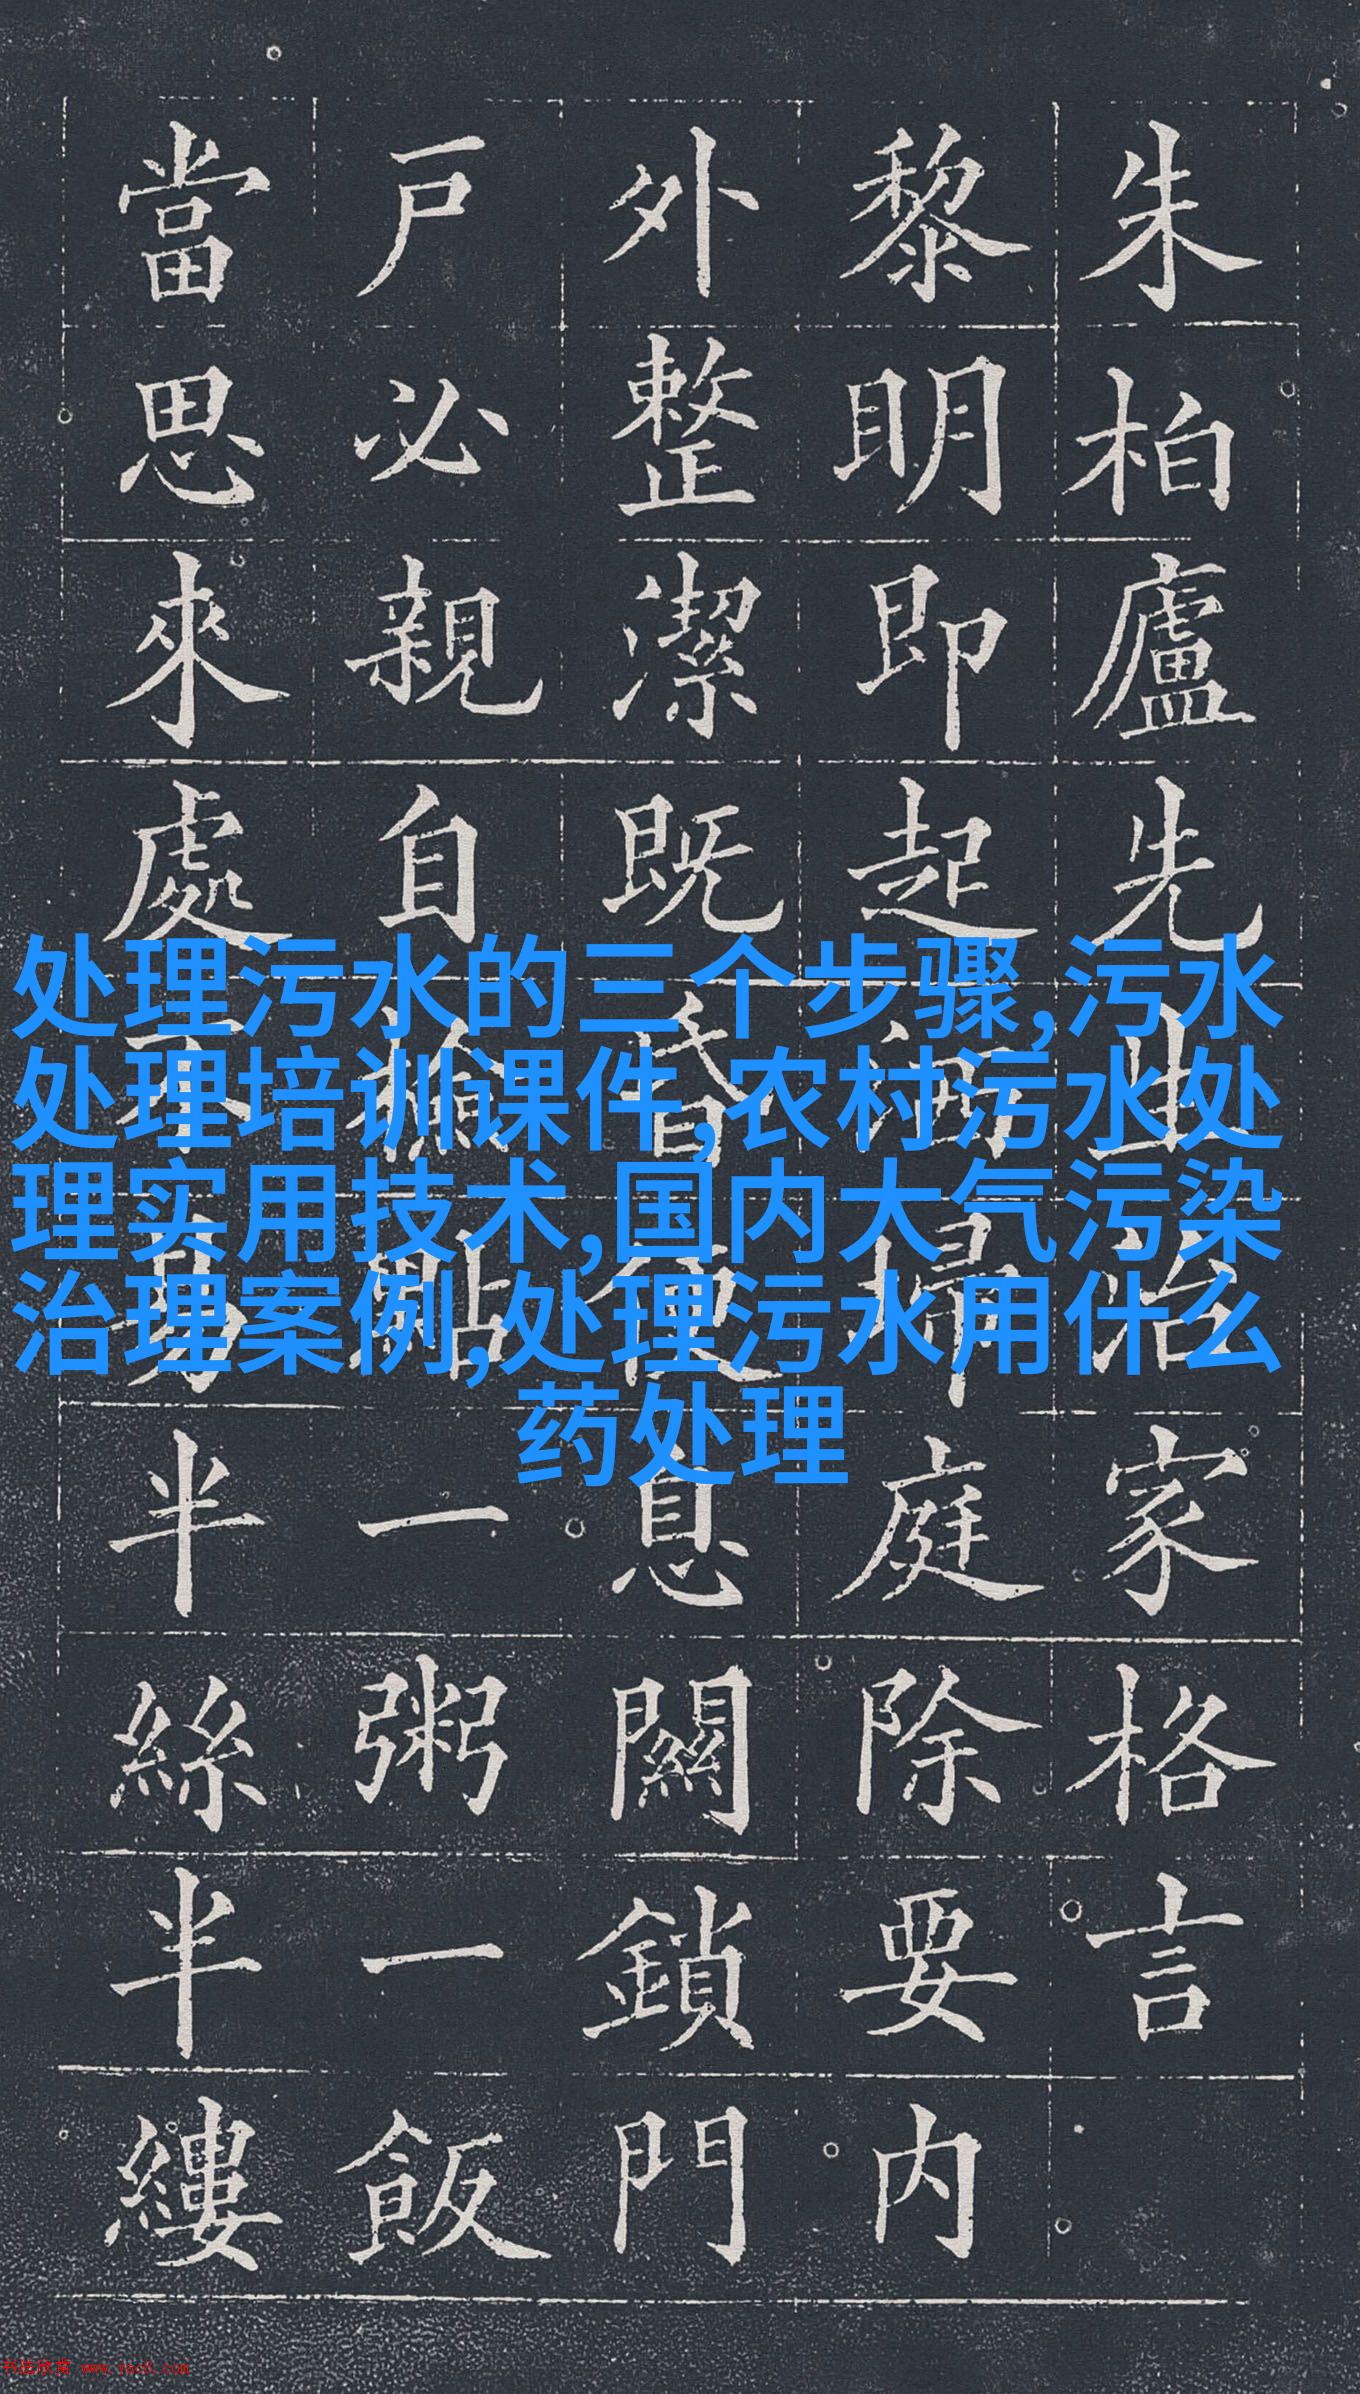 朱柏廬先生治家格言
黎眀即起洒掃庭除要内
外整潔既昏便息關鎖門
戶必親自檢點一粥一飯
當思來處不易半絲半縷
处理污水的三个步骤,污水
处理培训课件,农村污水处
理实用技术,国内大气污染
治理案例,处理污水用什么
药处理
书法欣赏 www.yac8.com